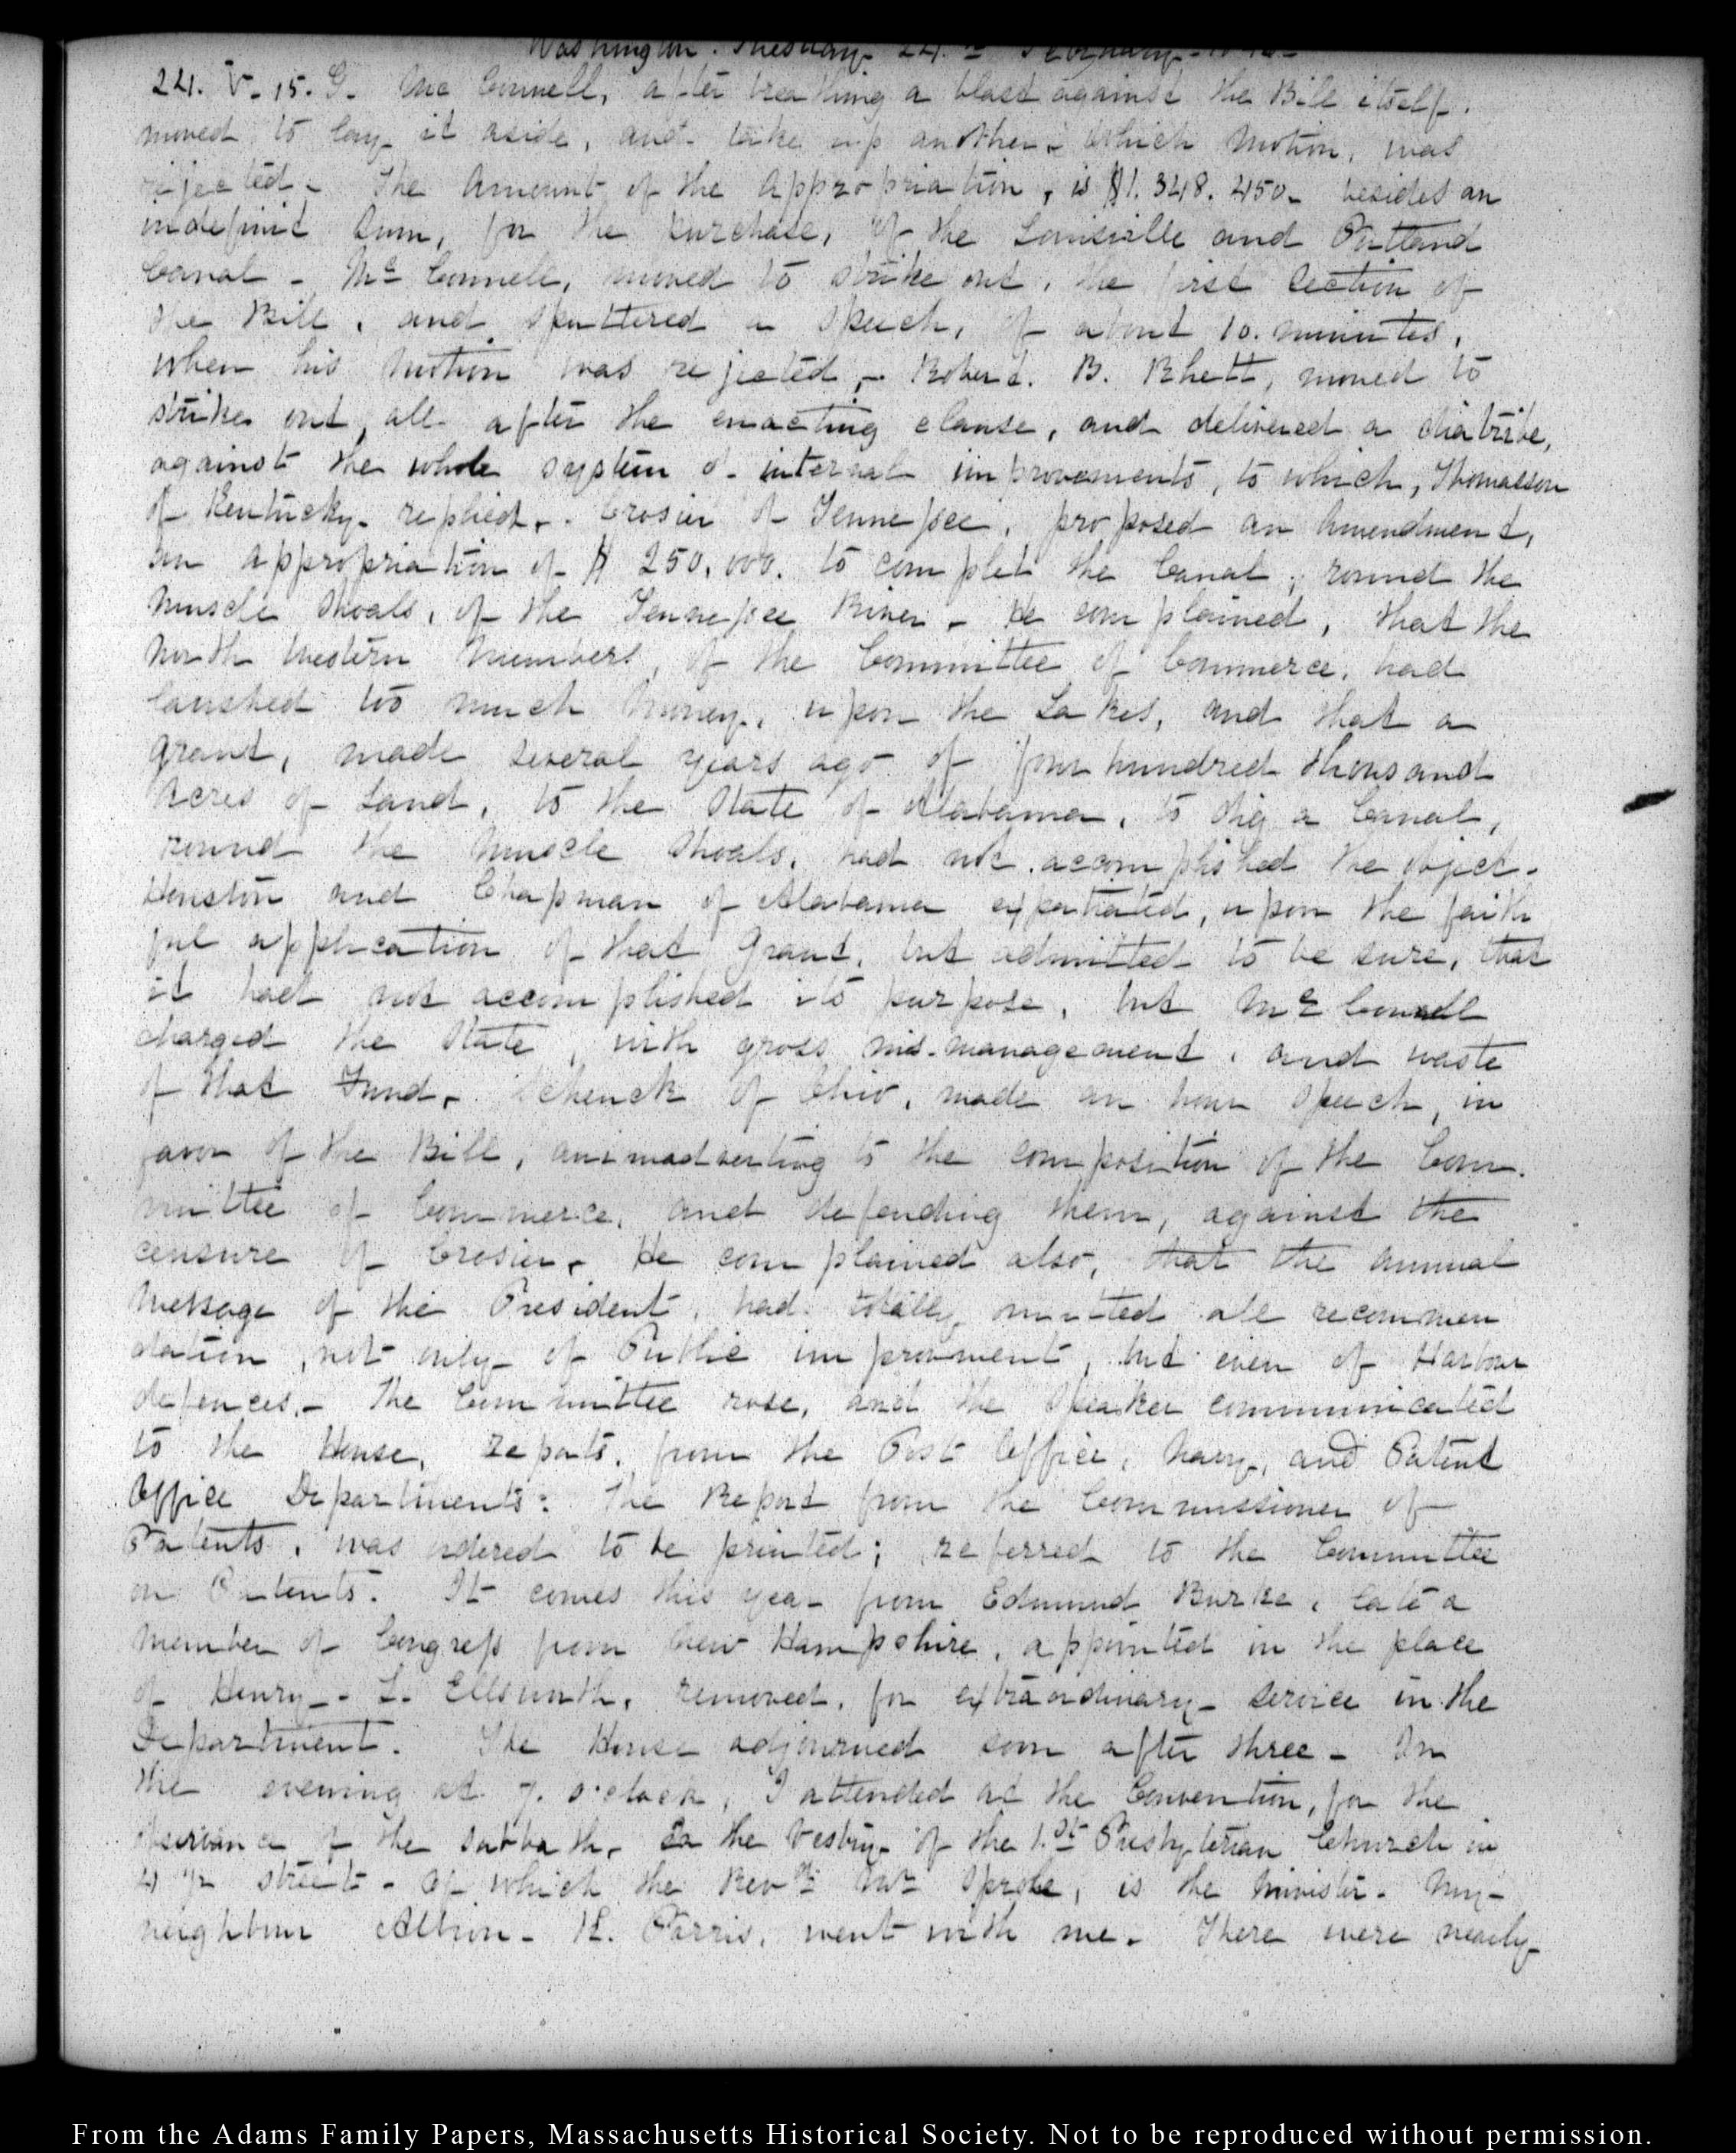 Washington. Tuesday 24.th February
24. V. 15. G. McConnell, after breathing a blast against the Bill itself.
moved to lay it aside, and take up another. Which motion, was
rejected. The Amount of the Appropriation, is $1.348.450. besides an
indefinit Sum, for the purchase, of the Louisville and Portland
Canal - McConnell, moved to strike out, the first Section of
the Bill, and sputtered a speech, of about 10. minutes,
when his motion was rejected,- Robert. B. Rhett, moved to
strike out all after the enacting clause, and delivered a diatribe,
against the whole system of internal improvements, to which, Thomasson
of Kentucky replied. Crosier of Tennessee, proposed an Amendment,
an appropriation of $ 250.000. to complete the Canal, round the
Muscle Shoals, of the Tennessee River. He complained, that the
North Western Members, of the Committee of Commerce, had
lavished too much Money, upon the Lakes, and that a
grant, made several years ago of four hundred thousand
Acres of Land, to the State of Alabama, to dig a Canal,
round the Muscle Shoals, had not accomplished the object.
Houston and Chapman of Alabama expatiated, upon the faith
ful application of that Grant, but admitted to be sure, that
it had not accomplished its purpose, but McConnell
charged the State, with gross mis-management, and waste
of that Fund. Schenck of Ohio, made an hour speech, in
favor of the Bill, animadverting to the composition of the Com.
mittee of Commerce, and defending them, against the
censure of Crosier. He complained also, that the annual
Message of the President, had totally omitted all recommen
dation, not only of Public improvment, but even of Harbour
defences.- The Committee rose, and the Speaker communicated
to the House, reports, from the Post Office, Navy, and Patent
Office Departments: The Report from the Commissioner of
Patents, was ordered to be printed; referred to the Committee
on Patents. It comes this year from Edmund Burke, late a
Member of Congress from New Hampshire, appointed in the place
of Henry. L. Ellsworth, removed, for extraordinary service in the
Department. The House adjourned soon after three - In
the evening at 7. o'clock, I attended at the Convention, for the
observance of the Sabbath, In the Vestry of the 1.st Presbyterian Church in
4 1/2 street - of which the Revd. Mr Sprole, is the Minister. My
neighbour Albion. K. Parris, went with me. There were nearly
From the Adams Family Papers, Massachusetts Historical Society. Not to be reproduced without permission.